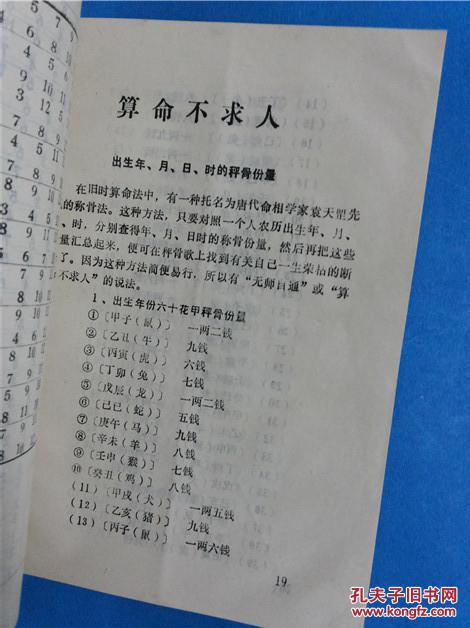 算命不求人
出生年、月、日、时的秤骨份量
在旧时算命法中，有一种托名为唐代命相学家袁天罡先
的称骨法。这种方法，只要对照一个人农历出生年、月、
、时，分别查得年、月、日时的称骨份量，然后再把这些
量汇总起来，便可在秤骨歌上找到有关自己一生荣枯的断
了。因为这种方法简便易行，所以有“无师自通”或“算
不求人”的说法。
1、出生年份六十花甲秤骨份量
①〔甲子（鼠）〕 一两二钱
②〔乙丑（牛）〕 九钱
③〔丙寅（虎）〕 六钱
④〔丁卯（兔）〕 七钱
⑤〔戊辰（龙）〕 一两二钱
⑥〔己巳（蛇）〕 五钱
⑦〔庚午（马）〕 九钱
⑧〔辛未（羊）〕 八钱
⑨〔壬申（猴）〕 七钱
⑩〔癸丑（鸡）〕 八钱
（11）〔甲戌（犬）〕 一两五钱
（12）〔乙亥（猪）〕 九钱
（13）〔丙子（鼠）〕 一两六钱
19
孔夫子旧书网
www.kongfz.com